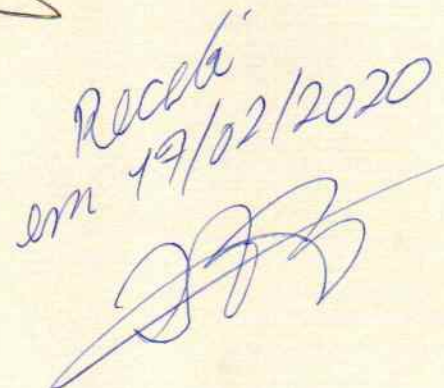 Recebi
em 17/02/2020